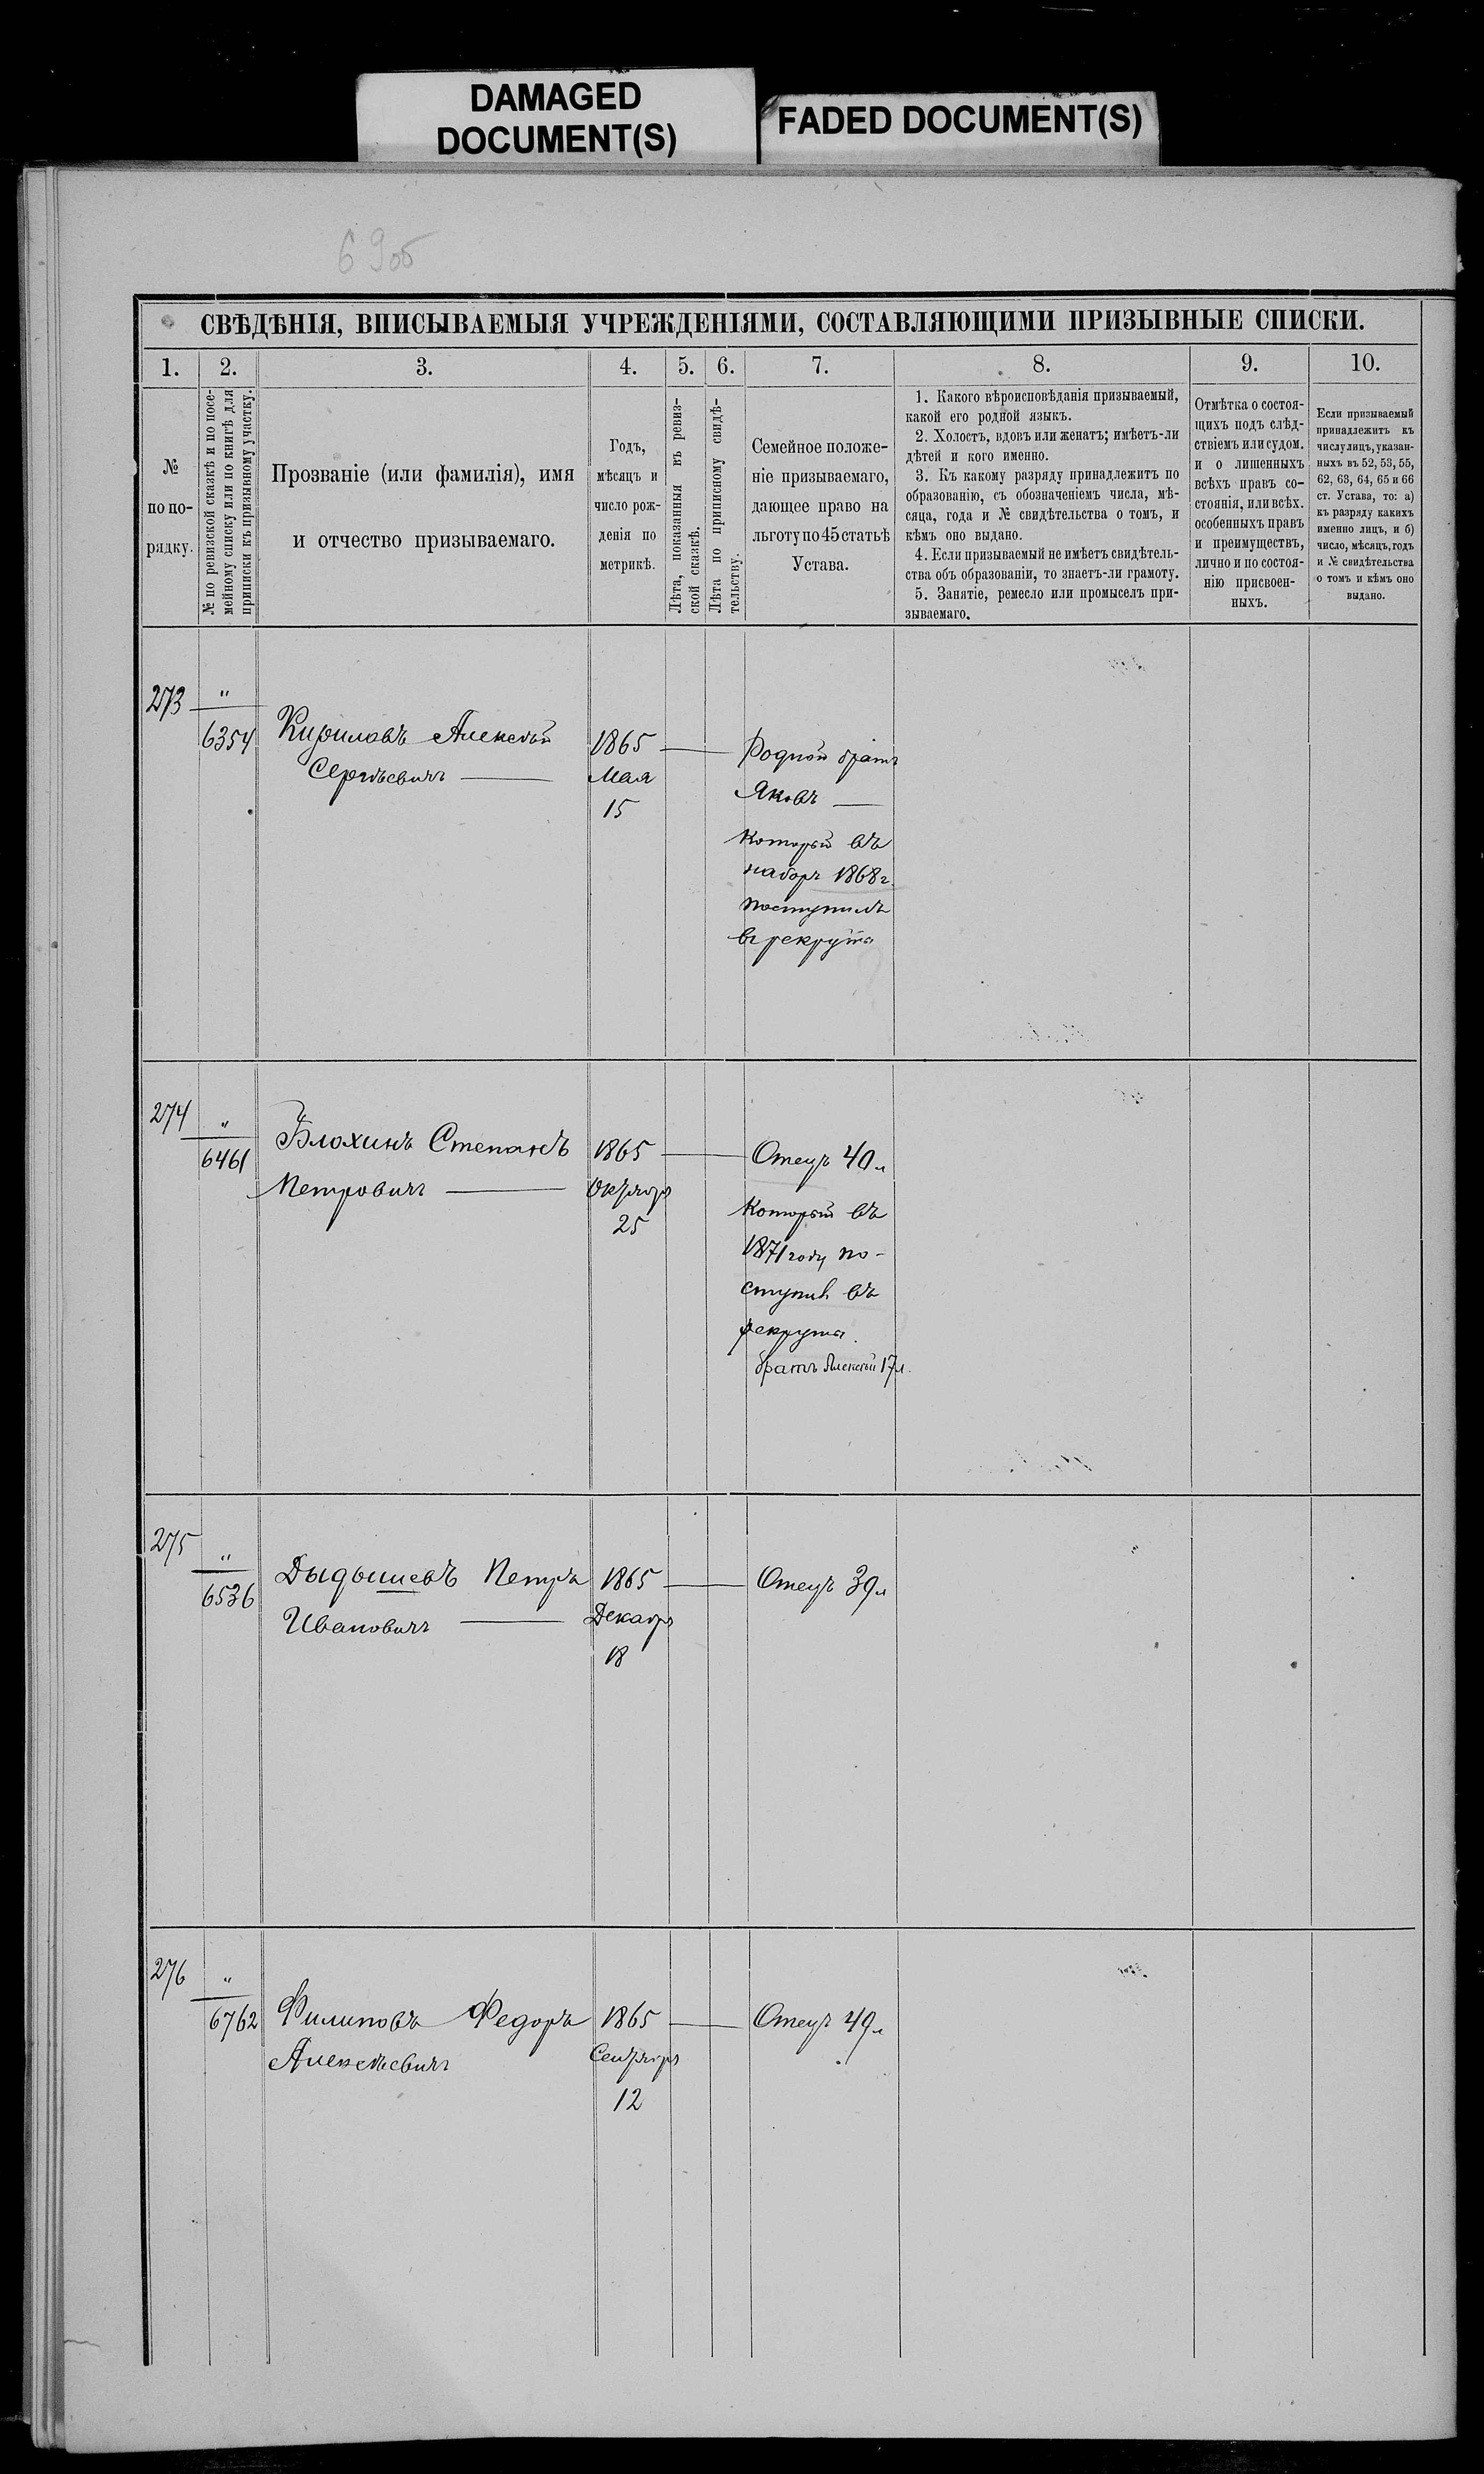 DAMAGED
DOCUMENT(S)
FADED DOCUMENT(S)
69об
СВѢДѢНІЯ, ВПИСЫВАЕМЫЯ УЧРЕЖДЕНІЯМИ, СОСТАВЛЯЮЩИМИ ПРИЗЫВНЫЕ СПИСКИ.
1.
2.
3.
4.
5.
6.
7.
8.
9.
10.
№
по по-
рядку.
№ по ревизской сказкѣ и по посе-
мейному списку или по книгѣ для
приписки къ призывному участку.
Прозваніе (или фамилія), имя
и отчество призываемаго.
Годъ,
мѣсяцъ и
число рож-
денія по
метрикѣ.
Лѣта, показанныя въ ревиз-
ской сказкѣ.
Лѣта по приписному свидѣ-
тельству.
Семейное положе-
ніе призываемаго,
дающее право на
льготу по 45 статьѣ
Устава.
1. Какого вѣроисповѣданія призываемый,
какой его родной языкъ.
2. Холостъ, вдовъ или женатъ; имѣетъ-ли
дѣтей и кого именно.
3. Къ какому разряду принадлежитъ по
образованію, съ обозначеніемъ числа, мѣ-
сяца, года и № свидѣтельства о томъ, и
кѣмъ оно выдано.
4. Если призываемый не имѣетъ свидѣтель-
ства объ образованіи, то знаетъ-ли грамоту.
5. Занятіе, ремесло или промыселъ при-
зываемаго.
Отмѣтка о состоя-
щихъ подъ слѣд-
ствіемъ или судом.
и о лишенныхъ
всѣхъ правъ со-
стоянія, или всѣх.
особенныхъ правъ
и преимуществъ,
лично и по состоя-
нію присвоен-
ныхъ.
Если призываемый
принадлежитъ къ
числу лицъ, указан-
ныхъ въ 52, 53, 55,
62, 63, 64, 65 и 66
ст. Устава, то: а)
къ разряду какихъ
именно лицъ, и б)
число, мѣсяцъ, годъ
и № свидѣтельства
о томъ и кѣмъ оно
выдано.
273
"
6354
Кириловъ Алексѣй
Сергѣевичъ
1865
Мая
15
Родной братъ
Яковъ
который въ
наборъ 1868 г.
поступилъ
в рекруты
274
"
6461
Блохинъ Степанъ
Петровичъ
1865
Октября
25
Отецъ 40 л
который въ
1871 году по-
ступил въ
рекруты.
братъ Алексѣй 17 л.
275
"
6536
Дыдышевъ Петръ
Ивановичъ
1865
Декабря
18
Отецъ 39 л
276
"
6762
Филиповъ Федоръ
Алексѣевичъ
1865
Сентября
12
Отецъ 49 л